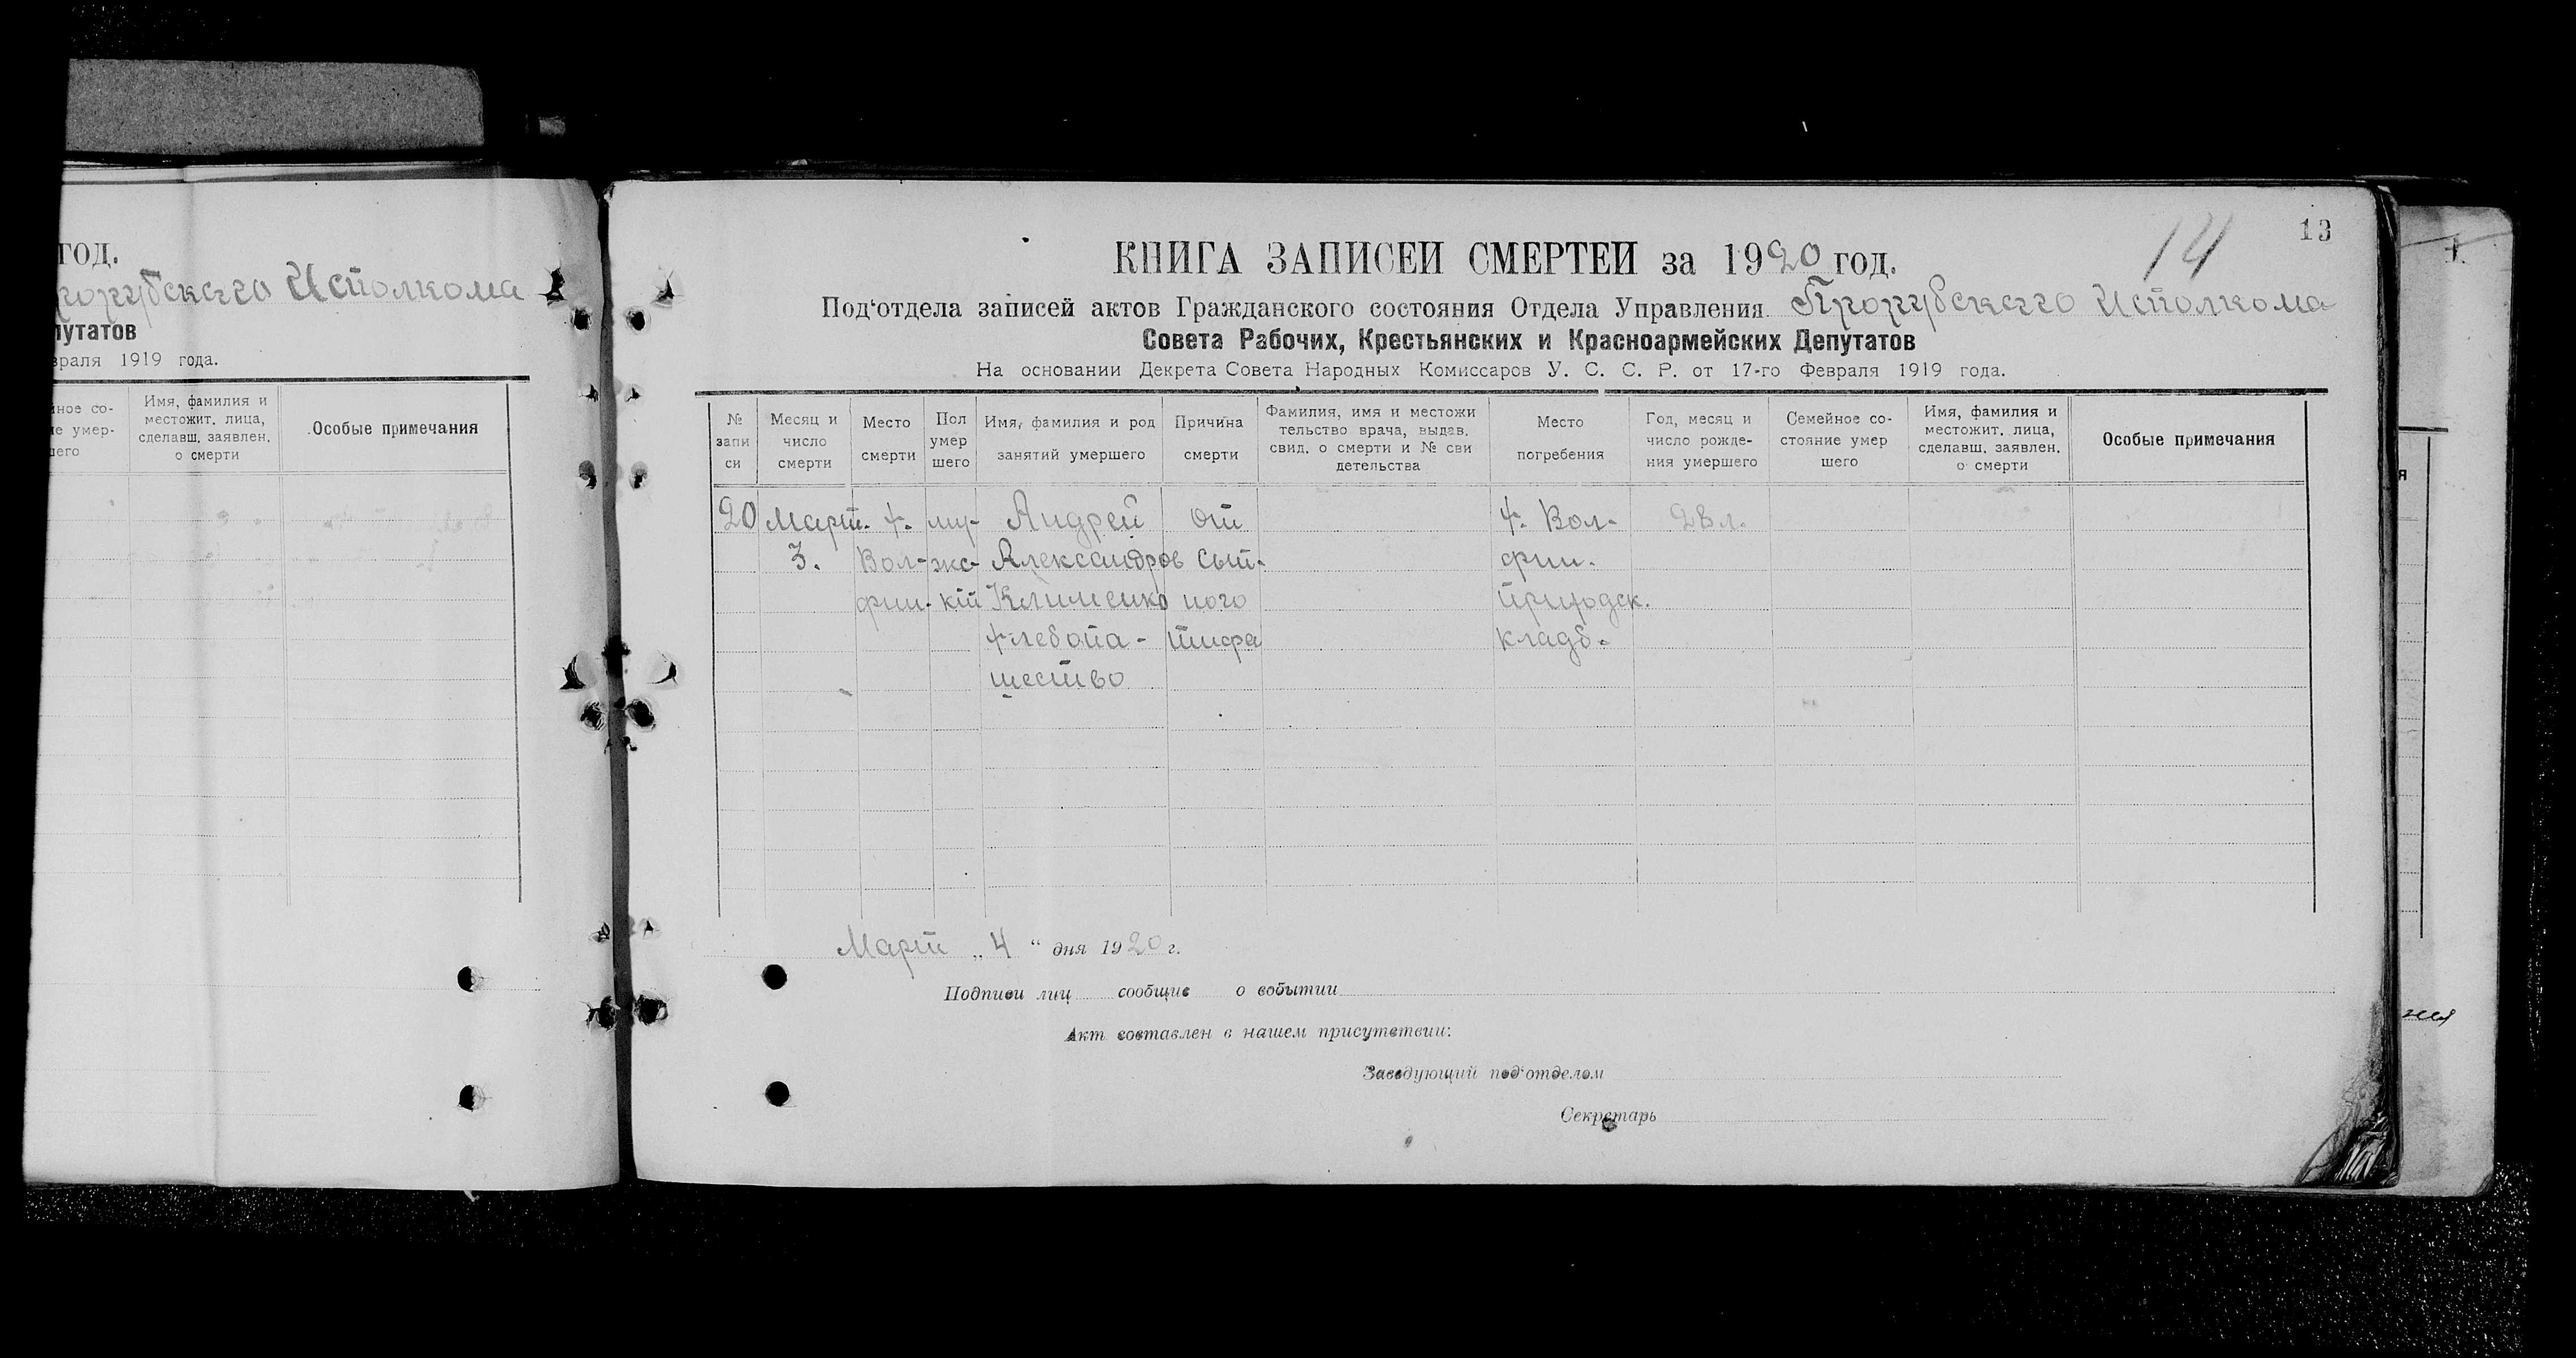 год.
Исполкома
путатов
враля 1919 года.
ное со-
е умер-
шего
Имя, фамилия и
местожит. лица,
сделавш. заявлен.
о смерти
Особые примечания
13
14
КНИГА ЗАПИСЕЙ СМЕРТЕЙ за 1920 год.
Под‘отдела записей актов Гражданского состояния Отдела Управления Исполкома
Совета Рабочих, Крестьянских и Красноармейских Депутатов
На основании Декрета Совета Народных Комиссаров У. С. С. Р. от 17-го Февраля 1919 года.
№
запи
си
Месяц и
число
смерти
Место
смерти
Пол
умер
шего
Имя, фамилия и род
занятий умершего
Причина
смерти
Фамилия, имя и местожи
тельство врача, выдав.
свид. о смерти и № сви
детельства
Место
погребения
Год, месяц и
число рожде-
ния умершего
Семейное со-
стояние умер
шего
Имя, фамилия и
местожит. лица,
сделавш. заявлен.
о смерти
Особые примечания
20
Март.
3.
х.
Вол-
фин.
му-
жс-
кій
Андрей
Александров
Клименко
хлебопа-
шество
от
сып-
ного
тифа
х. Вол-
фин.
приходск.
кладб.
28 л.
Март „ 4 “ дня 1920 г.
Подписи лиц сообщив о событии
Акт составлен в нашем присутствии:
Заведующий под‘отделом
Секретарь